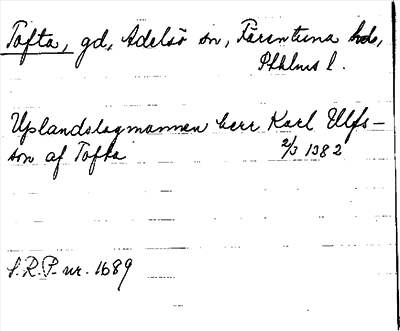 Tofta, gd, Adelsö sn, Färentuna hd,
Sthlms l.
Uplandslagmannen herr Karl Ulfs-
son af Tofta 2/3 1382
S.R.P. nr. 1689